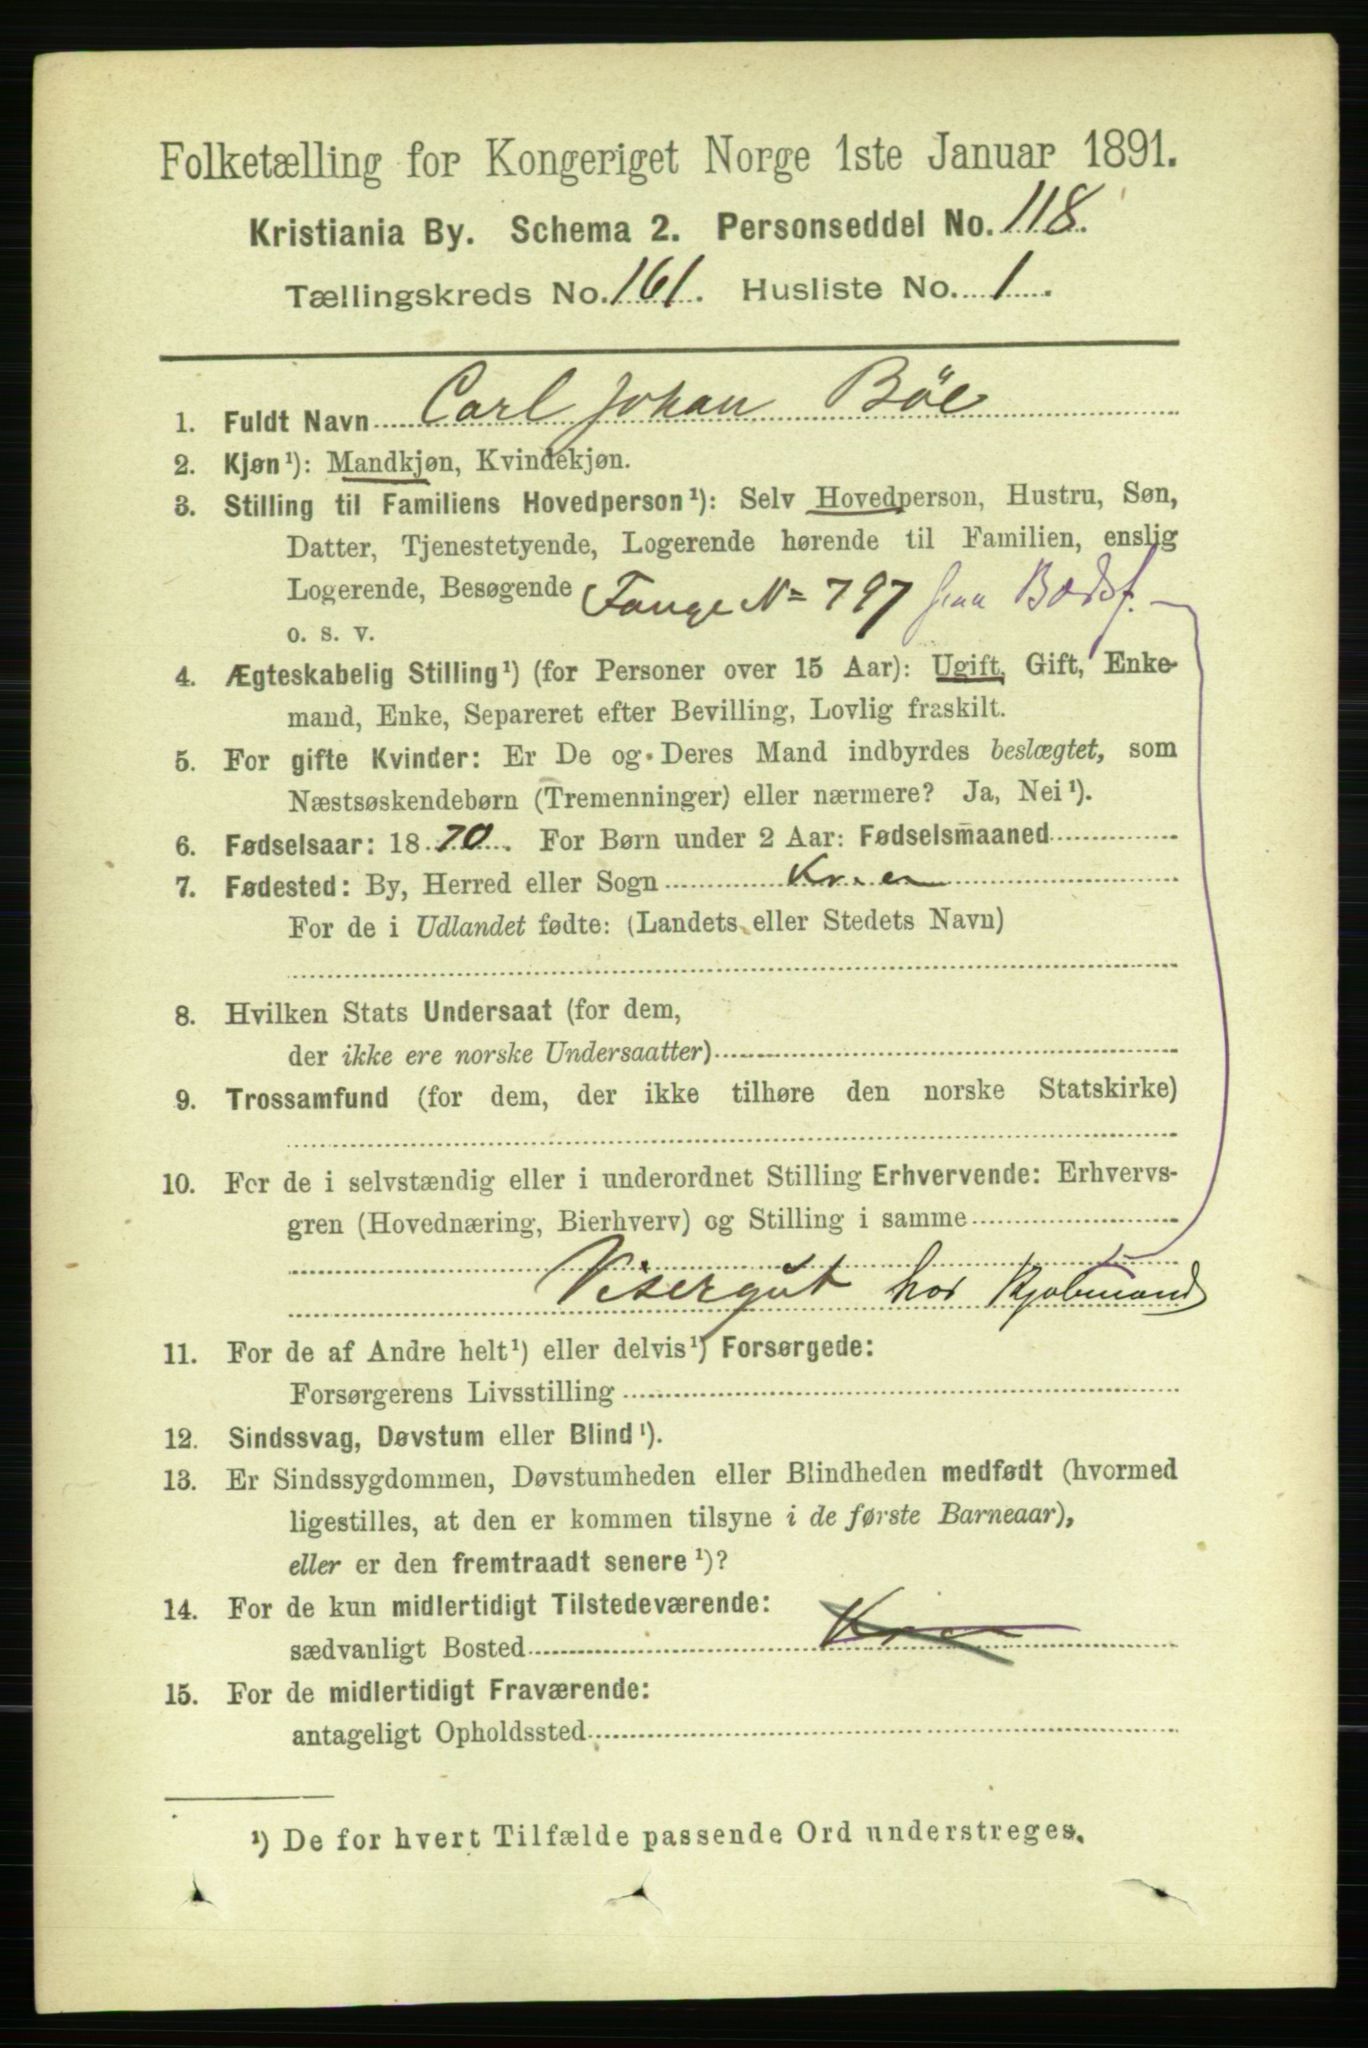 Folketælling for Kongeriget Norge 1ste Januar 1891.
Kristiania By. Schema 2. Personseddel No. 118.
Tællingskreds No. 161. Husliste No. 1.
1. Fuldt Navn Carl Johan Böe
2. Kjøn¹): Mandkjøn, Kvindekjøn.
3. Stilling til Familiens Hovedperson¹): Selv Hovedperson, Hustru, Søn,
Datter, Tjenestetyende, Logerende hørende til Familien, enslig
Logerende, Besøgende Fange No 797 paa Bodsf.
o. s. v.
4. Ægteskabelig Stilling¹) (for Personer over 15 Aar): Ugift, Gift, Enke-
mand, Enke, Separeret efter Bevilling, Lovlig fraskilt.
5. For gifte Kvinder: Er De og Deres Mand indbyrdes beslægtet, som
Næstsøskendebørn (Tremenninger) eller nærmere? Ja, Nei¹).
6. Fødselsaar: 1870. For Børn under 2 Aar: Fødselsmaaned
7. Fødested: By, Herred eller Sogn
For de i Udlandet fødte: (Landets eller Stedets Navn)
8. Hvilken Stats Undersaat (for dem,
der ikke ere norske Undersaatter)
9. Trossamfund (for dem, der ikke tilhøre den norske Statskirke)
10. For de i selvstændig eller i underordnet Stilling Erhvervende: Erhvervs-
gren (Hovednæring, Bierhverv) og Stilling i samme
Visergut hos Kjøbmand
11. For de af Andre helt¹) eller delvis¹) Forsørgede:
Forsørgerens Livsstilling
12. Sindssvag, Døvstum eller Blind¹).
13. Er Sindssygdommen, Døvstumheden eller Blindheden medfødt (hvormed
ligestilles, at den er kommen tilsyne i de første Barneaar),
eller er den fremtraadt senere¹)?
14. For de kun midlertidigt Tilstedeværende:
sædvanligt Bosted
15. For de midlertidigt Fraværende:
antageligt Opholdssted
¹) De for hvert Tilfælde passende Ord understreges.